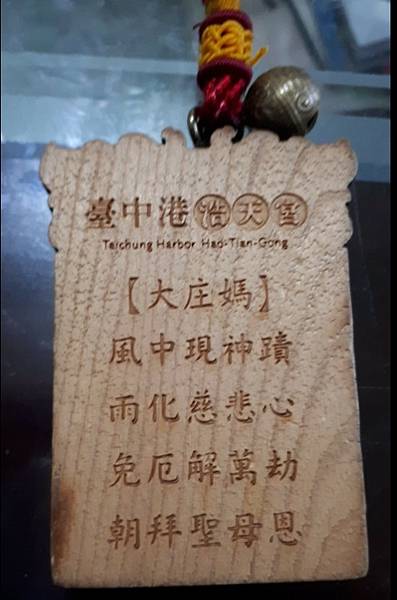 臺中港浩天宮
Taichung Harbor Hao-Tian-Gong
【大庄媽】
風中現神蹟
雨化慈悲心
免厄解萬劫
朝拜聖母恩